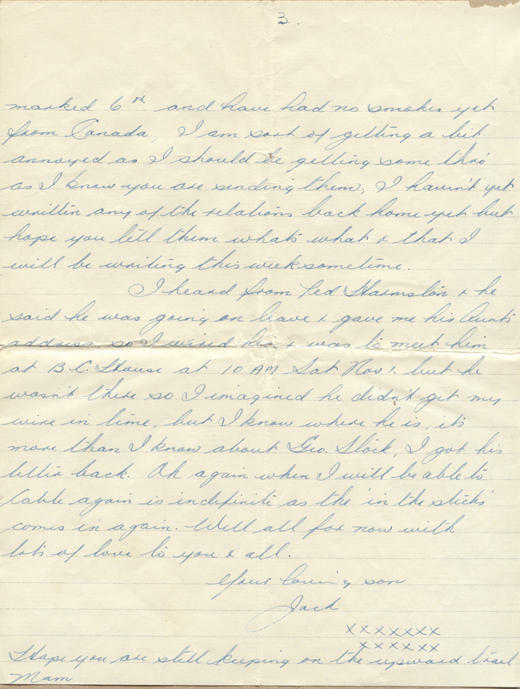 3.
marked 6th and have had no smokes yet
from Canada, I am sort of getting a bit
annoyed as I should be getting some thro'
as I know you are sending them, I haven't yet
written any of the relations back home yet but
hope you tell them what's what & that I
will be writing this week sometime.
I heard from Ted Harmston & he
said he was going on leave & gave me his Aunt's
address, so I wired him & was to meet him
at B.C. House at 10 AM Sat Nov 1. but he
wasn't there so I imagined he didn't get my
wire in time, but I know where he is, it's
more than I know about Geo. , I got his
letter back. Oh again when I will be able to
Cable again is indefinite as the 'in the sticks'
comes in again. Well all for now with
lots of love to you & all.
Your loving son
Jack
xxxxxxx
xxxxxx
Hope you are still keeping on the upward trail
Mam